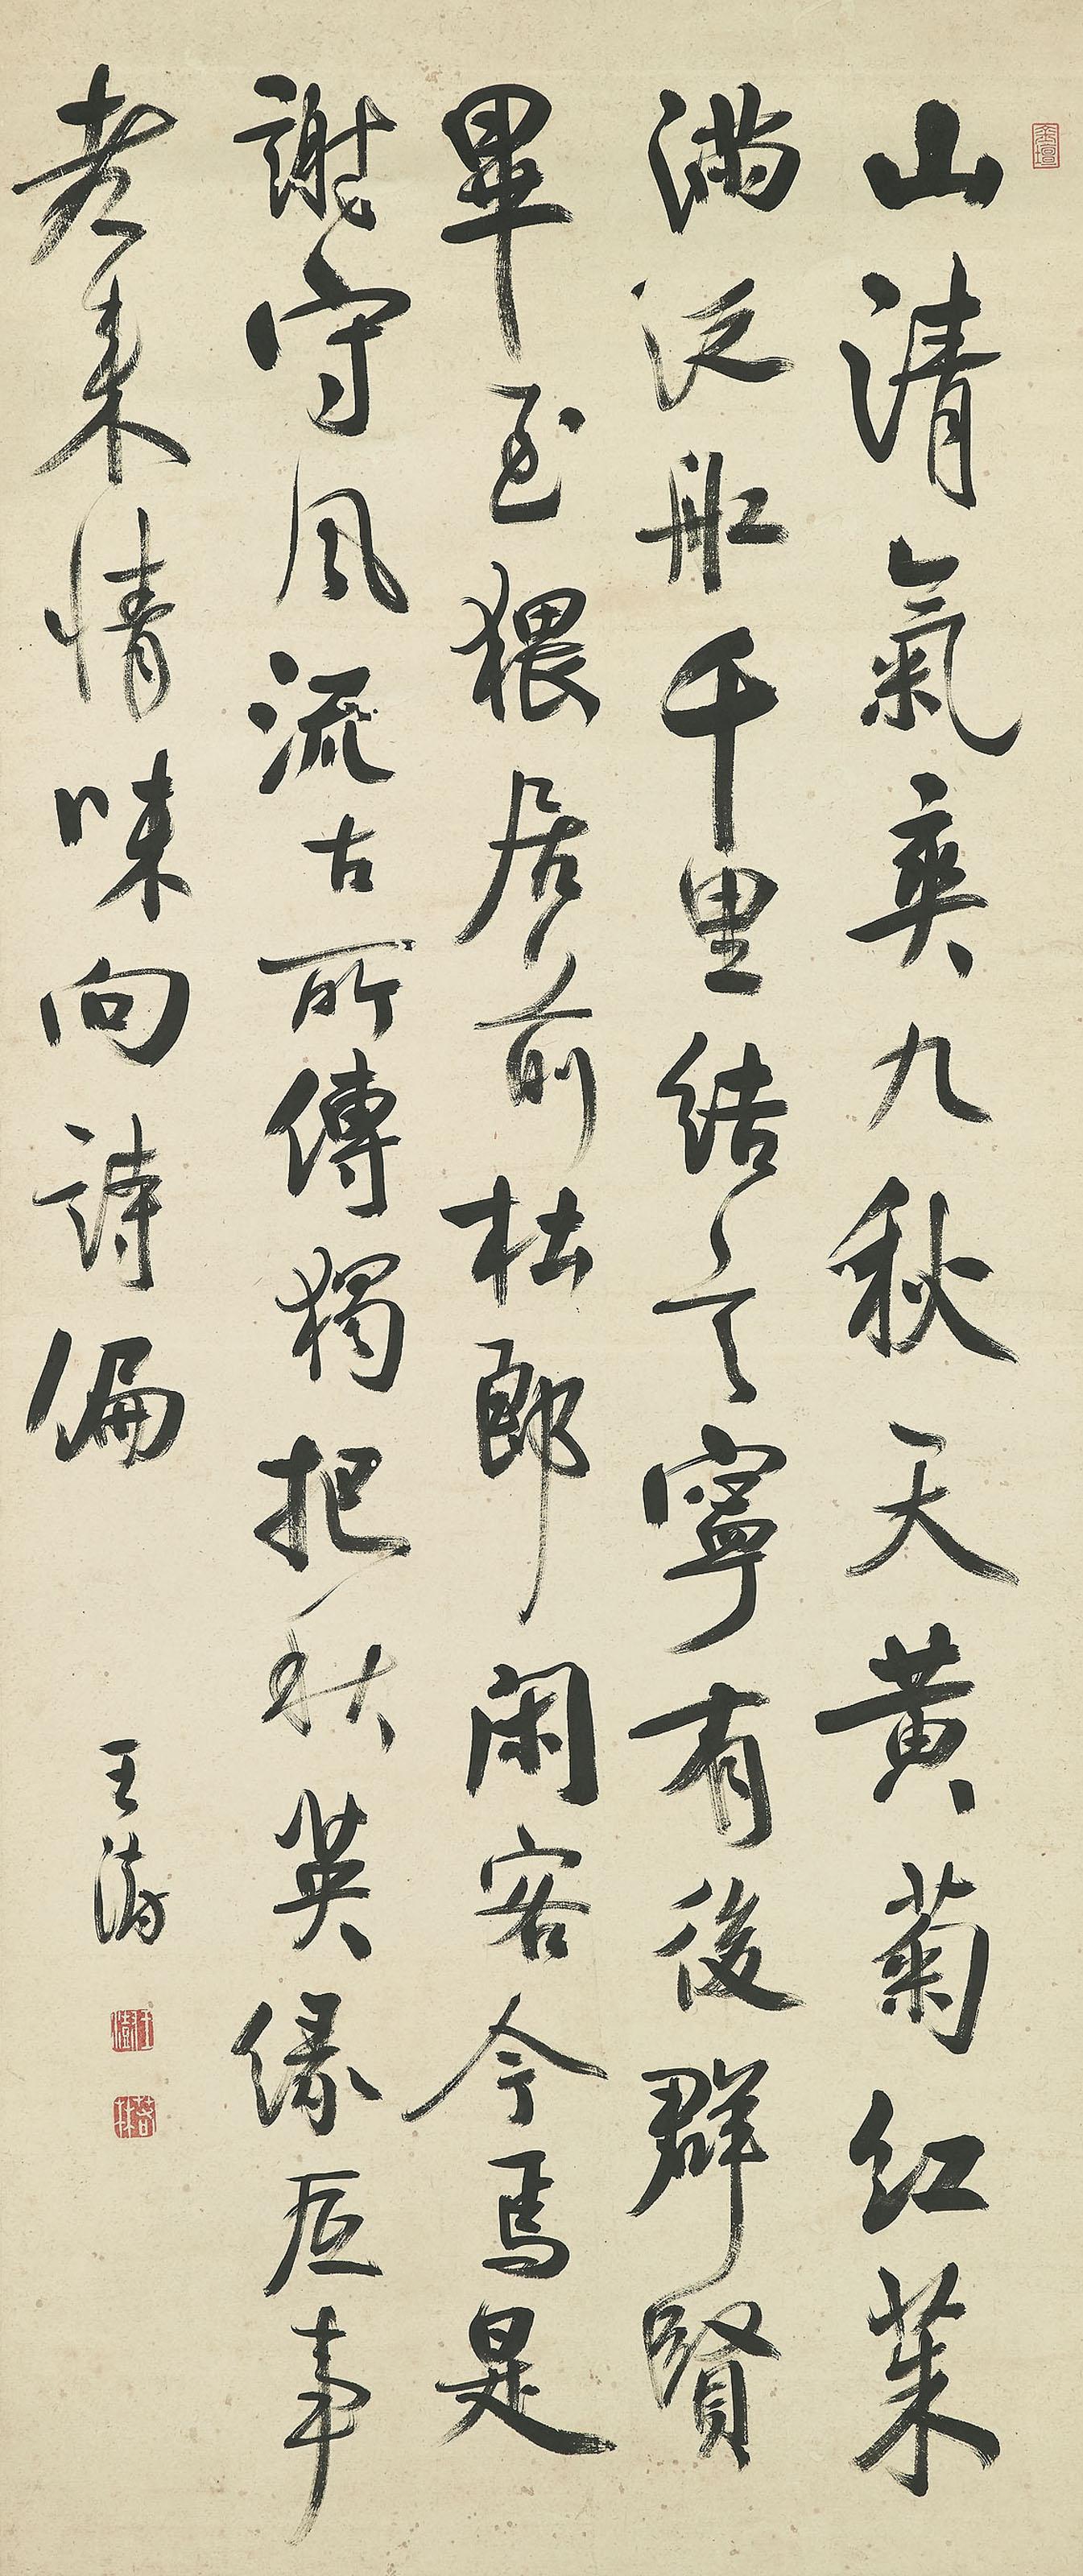 金壇
山清氣爽九秋天黄菊紅茱
滿泛舡千里結言寧有後群賢
畢至猥居前杜郎閑客今焉是
謝守風流古所傳獨把秋英緣底事
老來情味向詩偏
王澍
王澍
若林